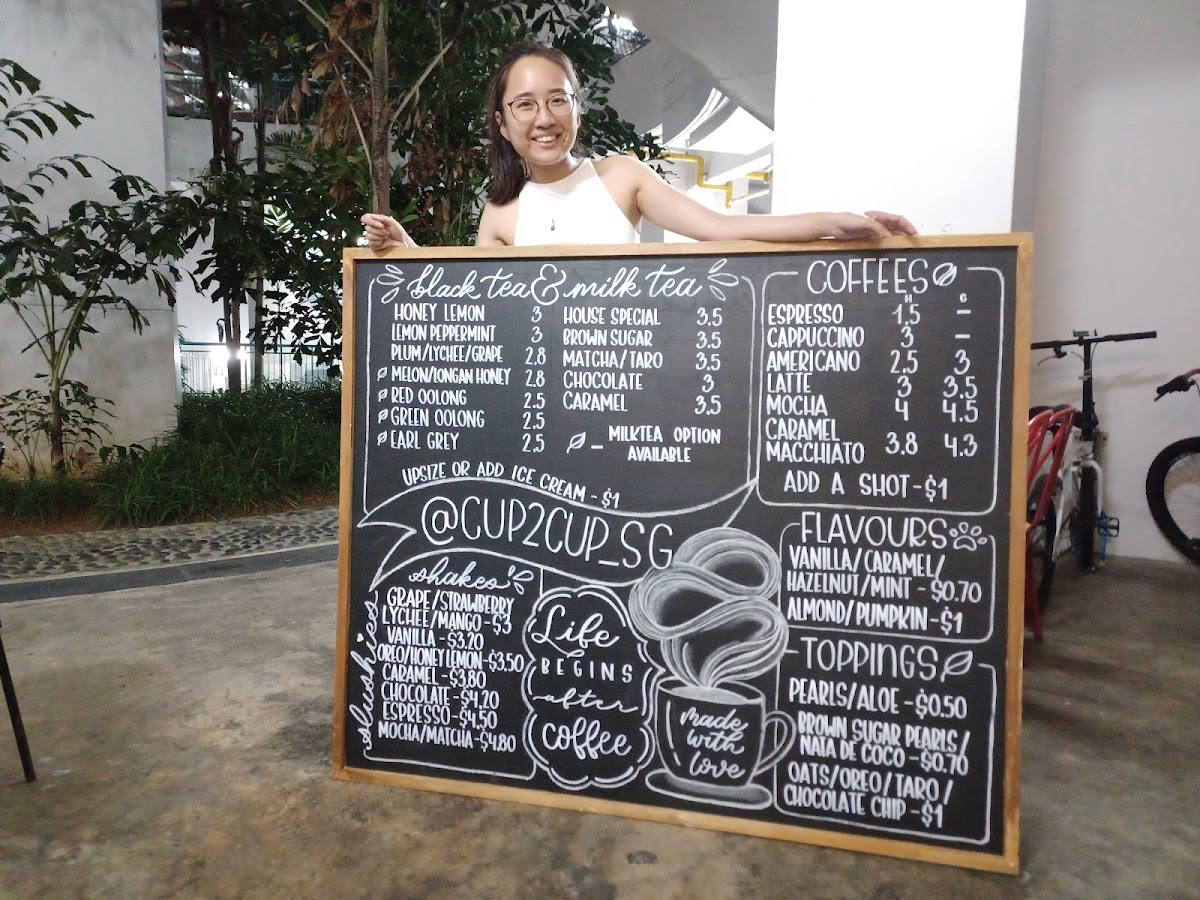 black tea & milk tea
HONEY LEMON 3
LEMON PEPPERMINT 3
PLUM/LYCHEE/GRAPE 2.8
MELON/LONGAN HONEY 2.8
RED OOLONG 2.5
GREEN OOLONG 2.5
EARL GREY 2.5
HOUSE SPECIAL 3.5
BROWN SUGAR 3.5
MATCHA/TARO 3.5
CHOCOLATE 3
CARAMEL 3.5
– MILKTEA OPTION
AVAILABLE
UPSIZE OR ADD ICE CREAM - $1
COFFEES
H C
ESPRESSO 1.5 –
CAPPUCCINO 3 –
AMERICANO 2.5 3
LATTE 3 3.5
MOCHA 4 4.5
CARAMEL
MACCHIATO 3.8 4.3
ADD A SHOT - $1
@CUP2CUP_SG
FLAVOURS
VANILLA/CARAMEL/
HAZELNUT/MINT - $0.70
ALMOND/PUMPKIN - $1
shakes
slushies
GRAPE/STRAWBERRY
LYCHEE/MANGO - $3
VANILLA - $3.20
OREO/HONEY LEMON - $3.50
CARAMEL - $3.80
CHOCOLATE - $4.20
ESPRESSO - $4.50
MOCHA/MATCHA - $4.80
Life
BEGINS
after
coffee
made
with
love
TOPPINGS
PEARLS/ALOE - $0.50
BROWN SUGAR PEARLS/
NATA DE COCO - $0.70
OATS/OREO/TARO/
CHOCOLATE CHIP - $1